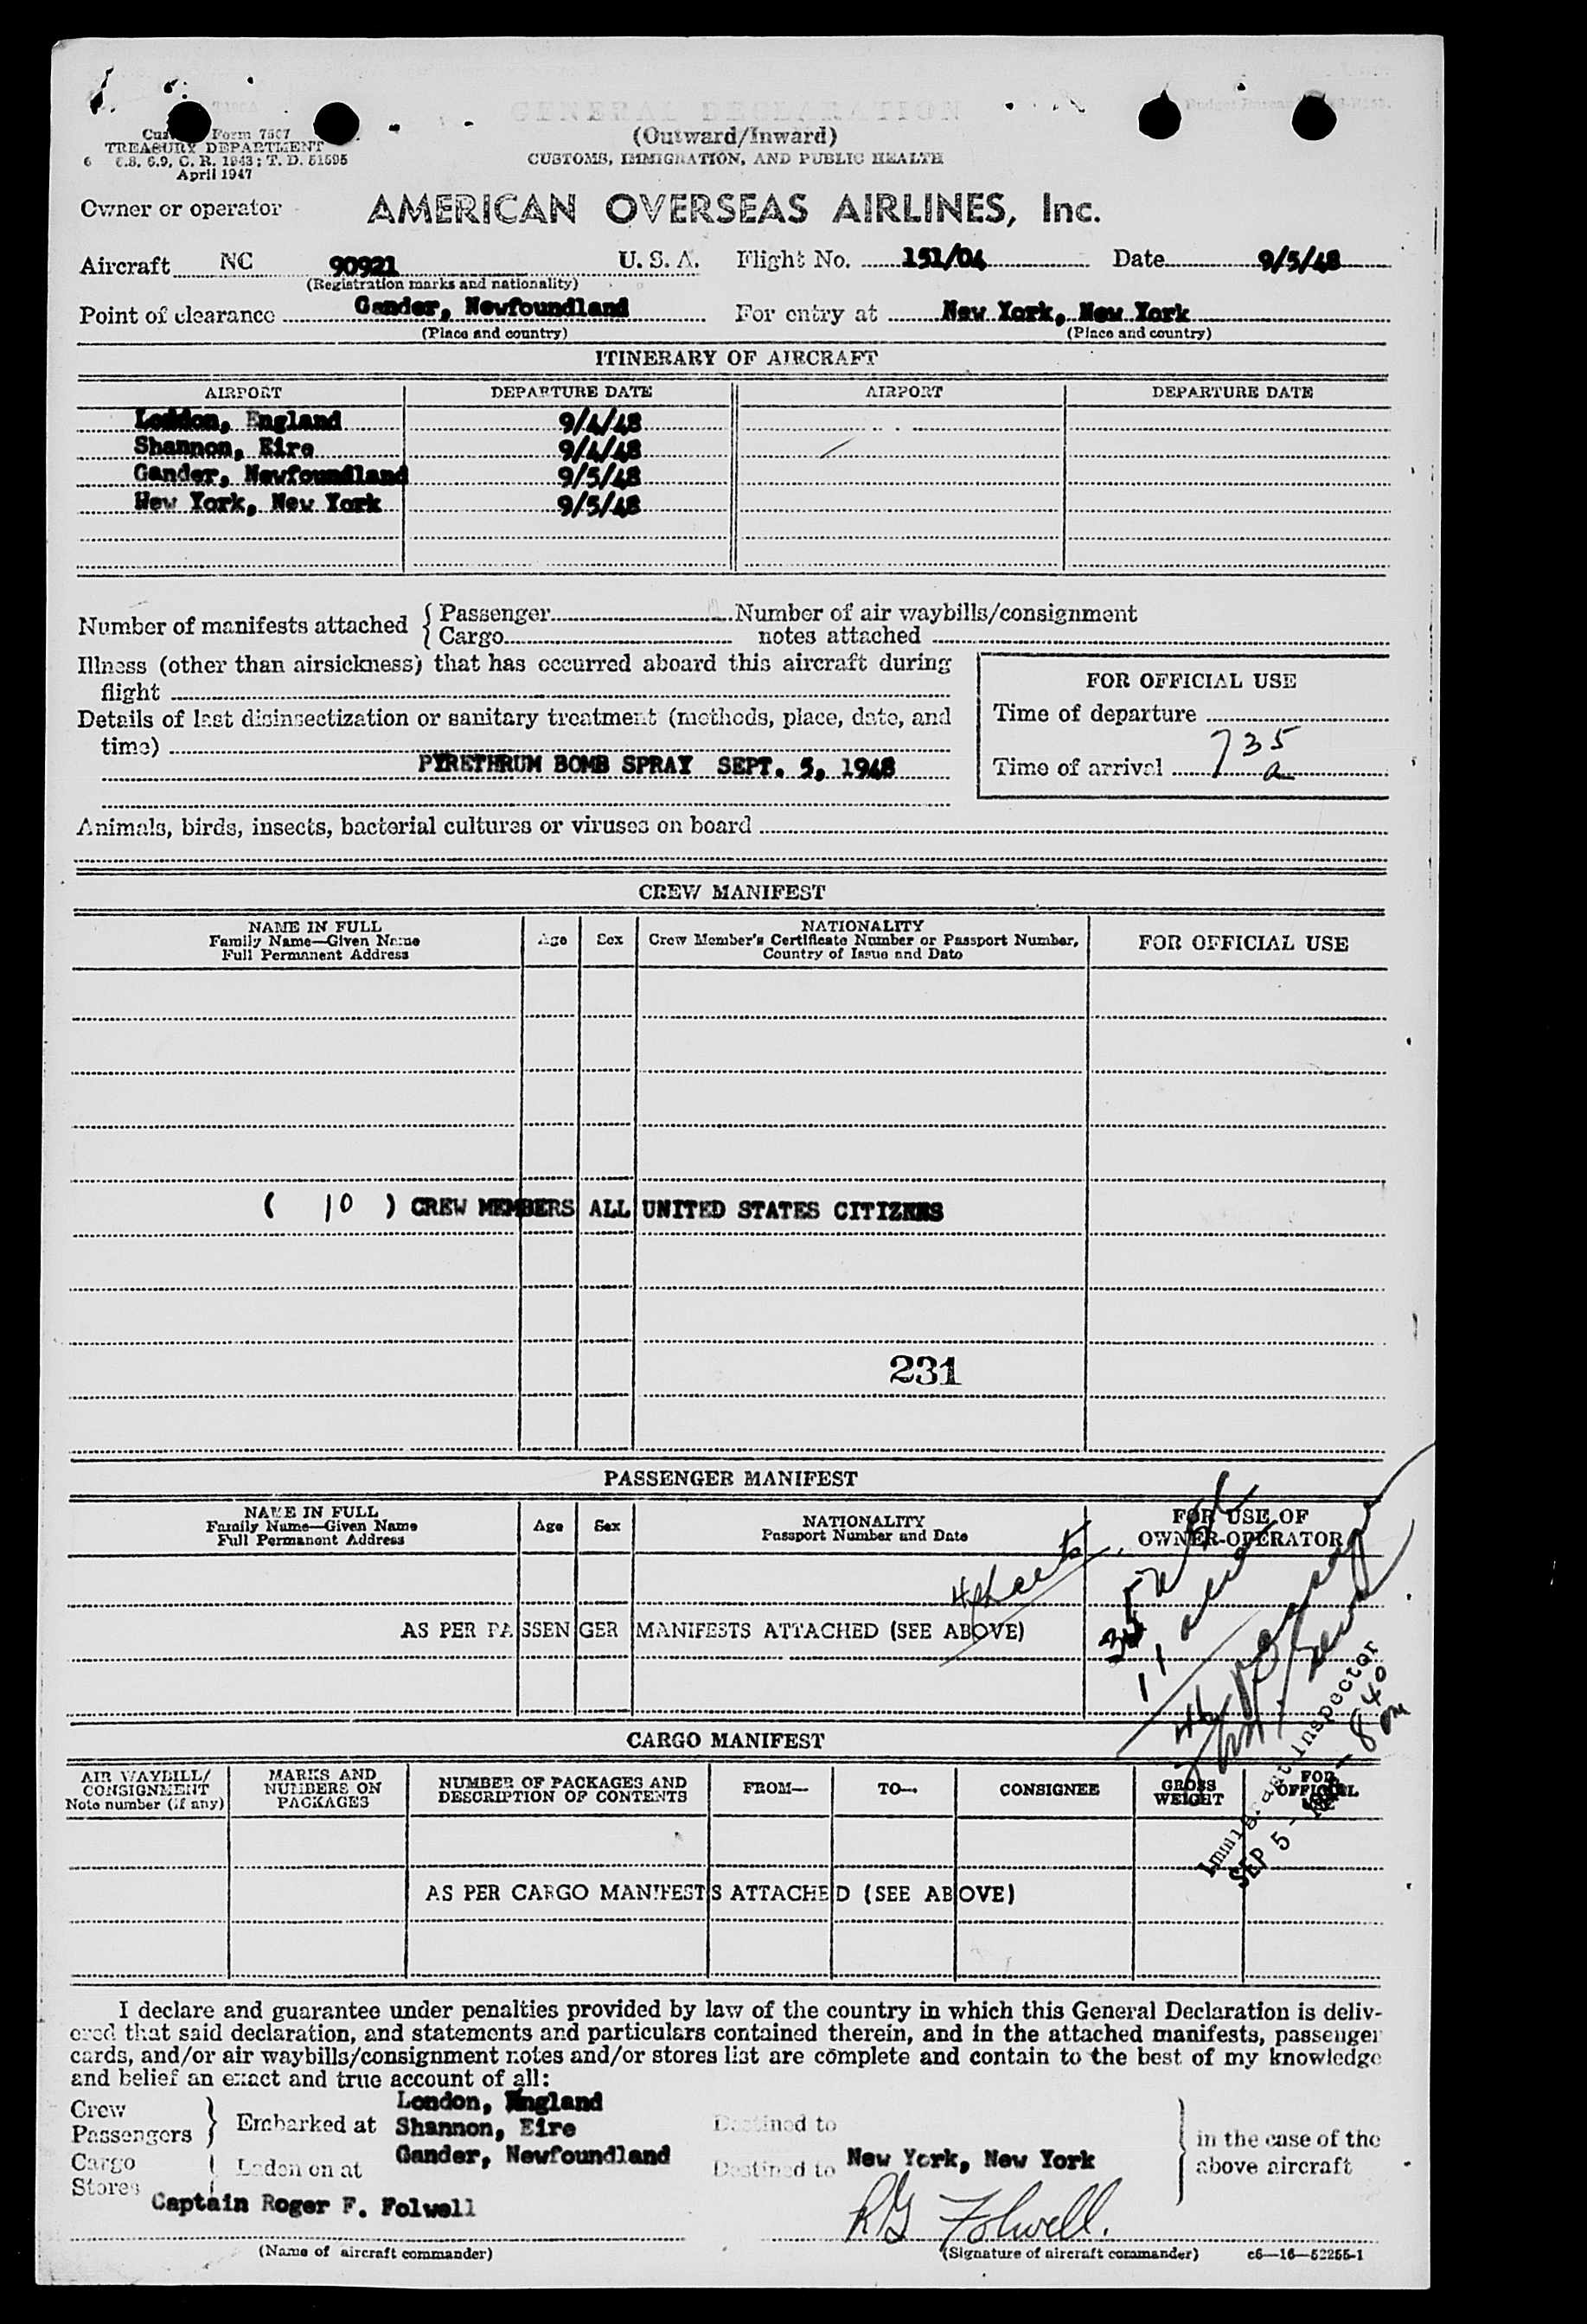 GENERAL DECLARATION
(Outward/Inward)
CUSTOMS, IMMIGRATION, AND PUBLIC HEALTH
Form 7507
TREASURY DEPARTMENT
6.8, 6.9, C. R. 1943; T. D. 51595
April 1947
Owner or operator AMERICAN OVERSEAS AIRLINES, Inc.
Aircraft NC 90921 U. S. A. Flight No. 151/04 Date 9/5/48
(Registration marks and nationality)
Point of clearance Gander, Newfoundland For entry at New York, New York
(Place and country) (Place and country)
ITINERARY OF AIRCRAFT
AIRPORT DEPARTURE DATE AIRPORT DEPARTURE DATE
London, England 9/4/48
Shannon, Eire 9/4/48
Gander, Newfoundland 9/5/48
New York, New York 9/5/48
Number of manifests attached { Passenger Number of air waybills/consignment
Cargo notes attached
Illness (other than airsickness) that has occurred aboard this aircraft during
flight
FOR OFFICIAL USE
Details of last disinsectization or sanitary treatment (methods, place, date, and
time)
Time of departure
PYRETHRUM BOMB SPRAY SEPT. 5, 1948
Time of arrival 735 a
Animals, birds, insects, bacterial cultures or viruses on board
CREW MANIFEST
NAME IN FULL
Family Name—Given Name
Full Permanent Address
Age Sex
NATIONALITY
Crew Member's Certificate Number or Passport Number,
Country of Issue and Date
FOR OFFICIAL USE
( 10 ) CREW MEMBERS ALL UNITED STATES CITIZENS
231
PASSENGER MANIFEST
NAME IN FULL
Family Name—Given Name
Full Permanent Address
Age Sex
NATIONALITY
Passport Number and Date
FOR USE OF
OWNER-OPERATOR
4 sheets
AS PER PASSENGER MANIFESTS ATTACHED (SEE ABOVE)
11
Immigrant Inspector
SEP 5 -
840
CARGO MANIFEST
AIR WAYBILL/
CONSIGNMENT
Note number (if any)
MARKS AND
NUMBERS ON
PACKAGES
NUMBER OF PACKAGES AND
DESCRIPTION OF CONTENTS
FROM— TO— CONSIGNEE
GROSS
WEIGHT
FOR
OFFICIAL
USE
AS PER CARGO MANIFESTS ATTACHED (SEE ABOVE)
I declare and guarantee under penalties provided by law of the country in which this General Declaration is deliv-
ered that said declaration, and statements and particulars contained therein, and in the attached manifests, passenger
cards, and/or air waybills/consignment notes and/or stores list are complete and contain to the best of my knowledge
and belief an exact and true account of all:
Crew
Passengers } Embarked at London, England
Shannon, Eire
Destined to
Cargo
Stores { Laden on at Gander, Newfoundland
Destined to New York, New York
} in the case of the
above aircraft
Captain Roger F. Folwell
R F Folwell.
(Name of aircraft commander) (Signature of aircraft commander) c6—16—52255-1